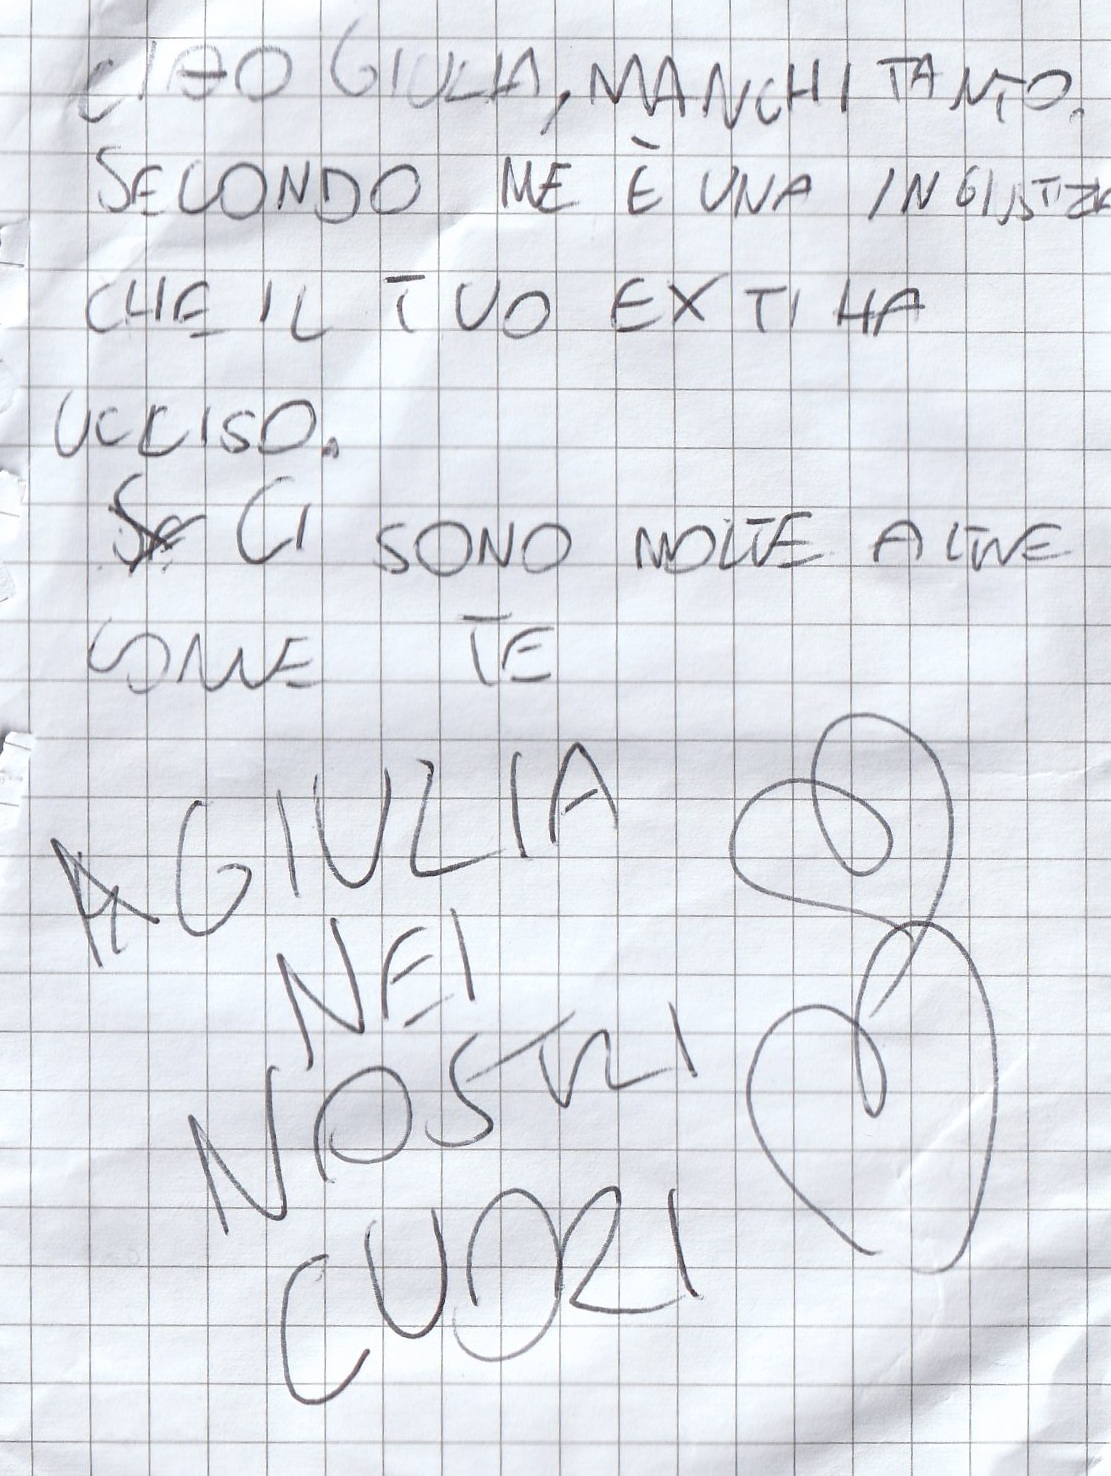 CIAO GIULIA, MANCHI TANTO.
SECONDO ME È UNA INGIUSTIZIA
CHE IL TUO EX TI HA
UCCISO.
CI SONO MOLTE ALTRE
COME TE
A GIULIA
NEI
NOSTRI
CUORI